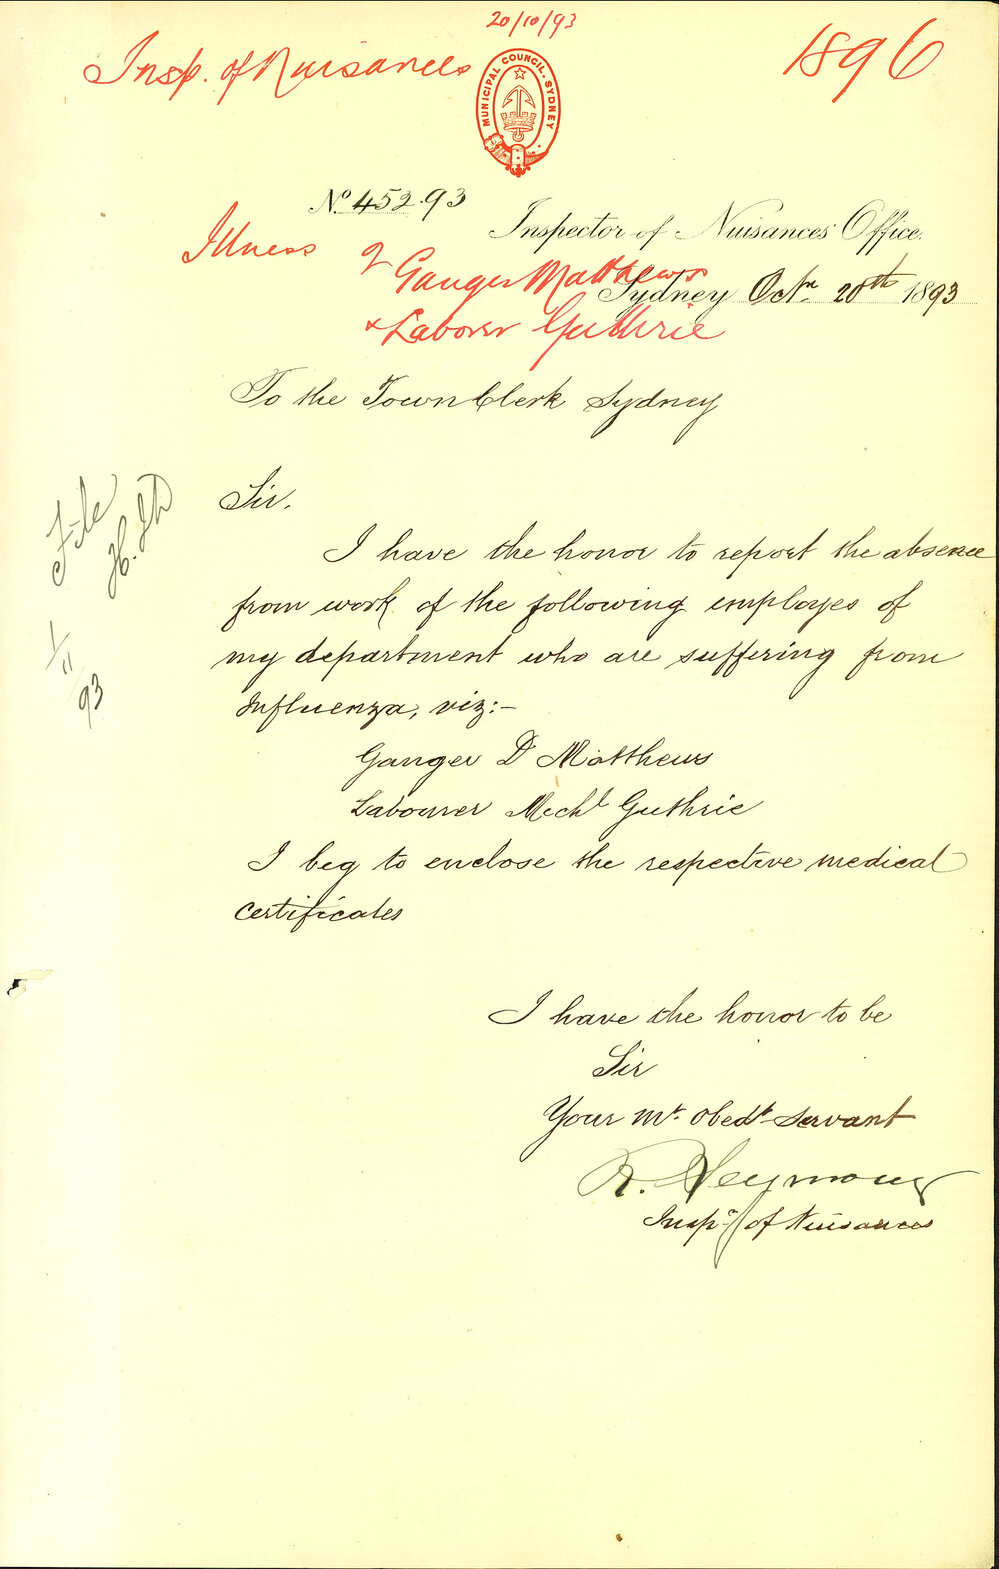 20/10/93
Insp. of Nuisances
1896
MUNICIPAL COUNCIL. SYDNEY
No. 452.93
Inspector of Nuisances' Office.
Illness of Ganger Matthews
Sydney Octr 20th 1893
& Laborer Guthrie
To the Town Clerk Sydney
Sir.
I have the honor to report the absence
from work of the following employes of
my department who are suffering from
Influenza, viz:-
Ganger D Matthews
Labourer Michl Guthrie
I beg to enclose the respective medical
certificates
I have the honor to be
Sir
Your mt. obedt servant
R. Seymour
Inspr of Nuisances
File
1/11/93